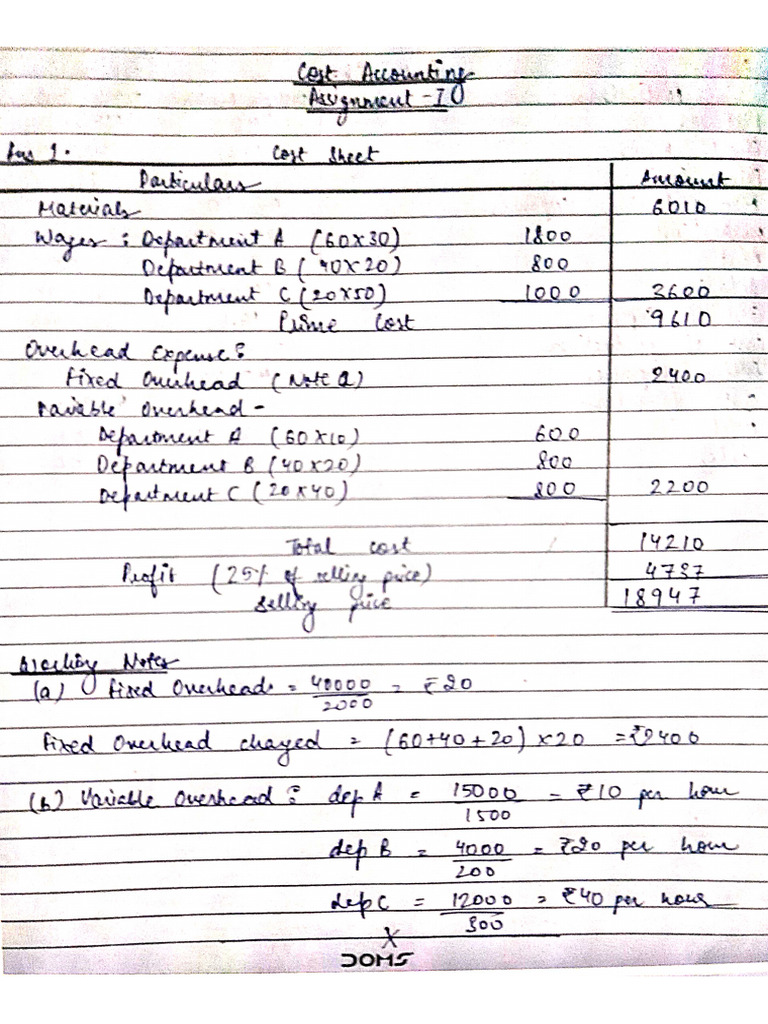 Cost Accounting
Assignment - I
Ans 1. Cost Sheet
Particulars Amount
Materials 6010
Wages : Department A (60x30) 1800
Department B (40x20) 800
Department C (20x50) 1000 3600
Prime Cost 9610
Overhead Expense :
Fixed Overhead (Note a) 2400
Variable Overhead -
Department A (60x10) 600
Department B (40x20) 800
Department C (20x40) 800 2200
Total cost 14210
Profit (25% of selling price) 4737
Selling price 18947
Working Notes
(a) Fixed Overhead = 40000/2000 = ₹20
Fixed Overhead charged = (60+40+20) x 20 = ₹2400
(b) Variable Overhead : dep A = 15000/1500 = ₹10 per hour
dep B = 4000/200 = ₹20 per hour
dep C = 12000/300 = ₹40 per hour
X
DOMS